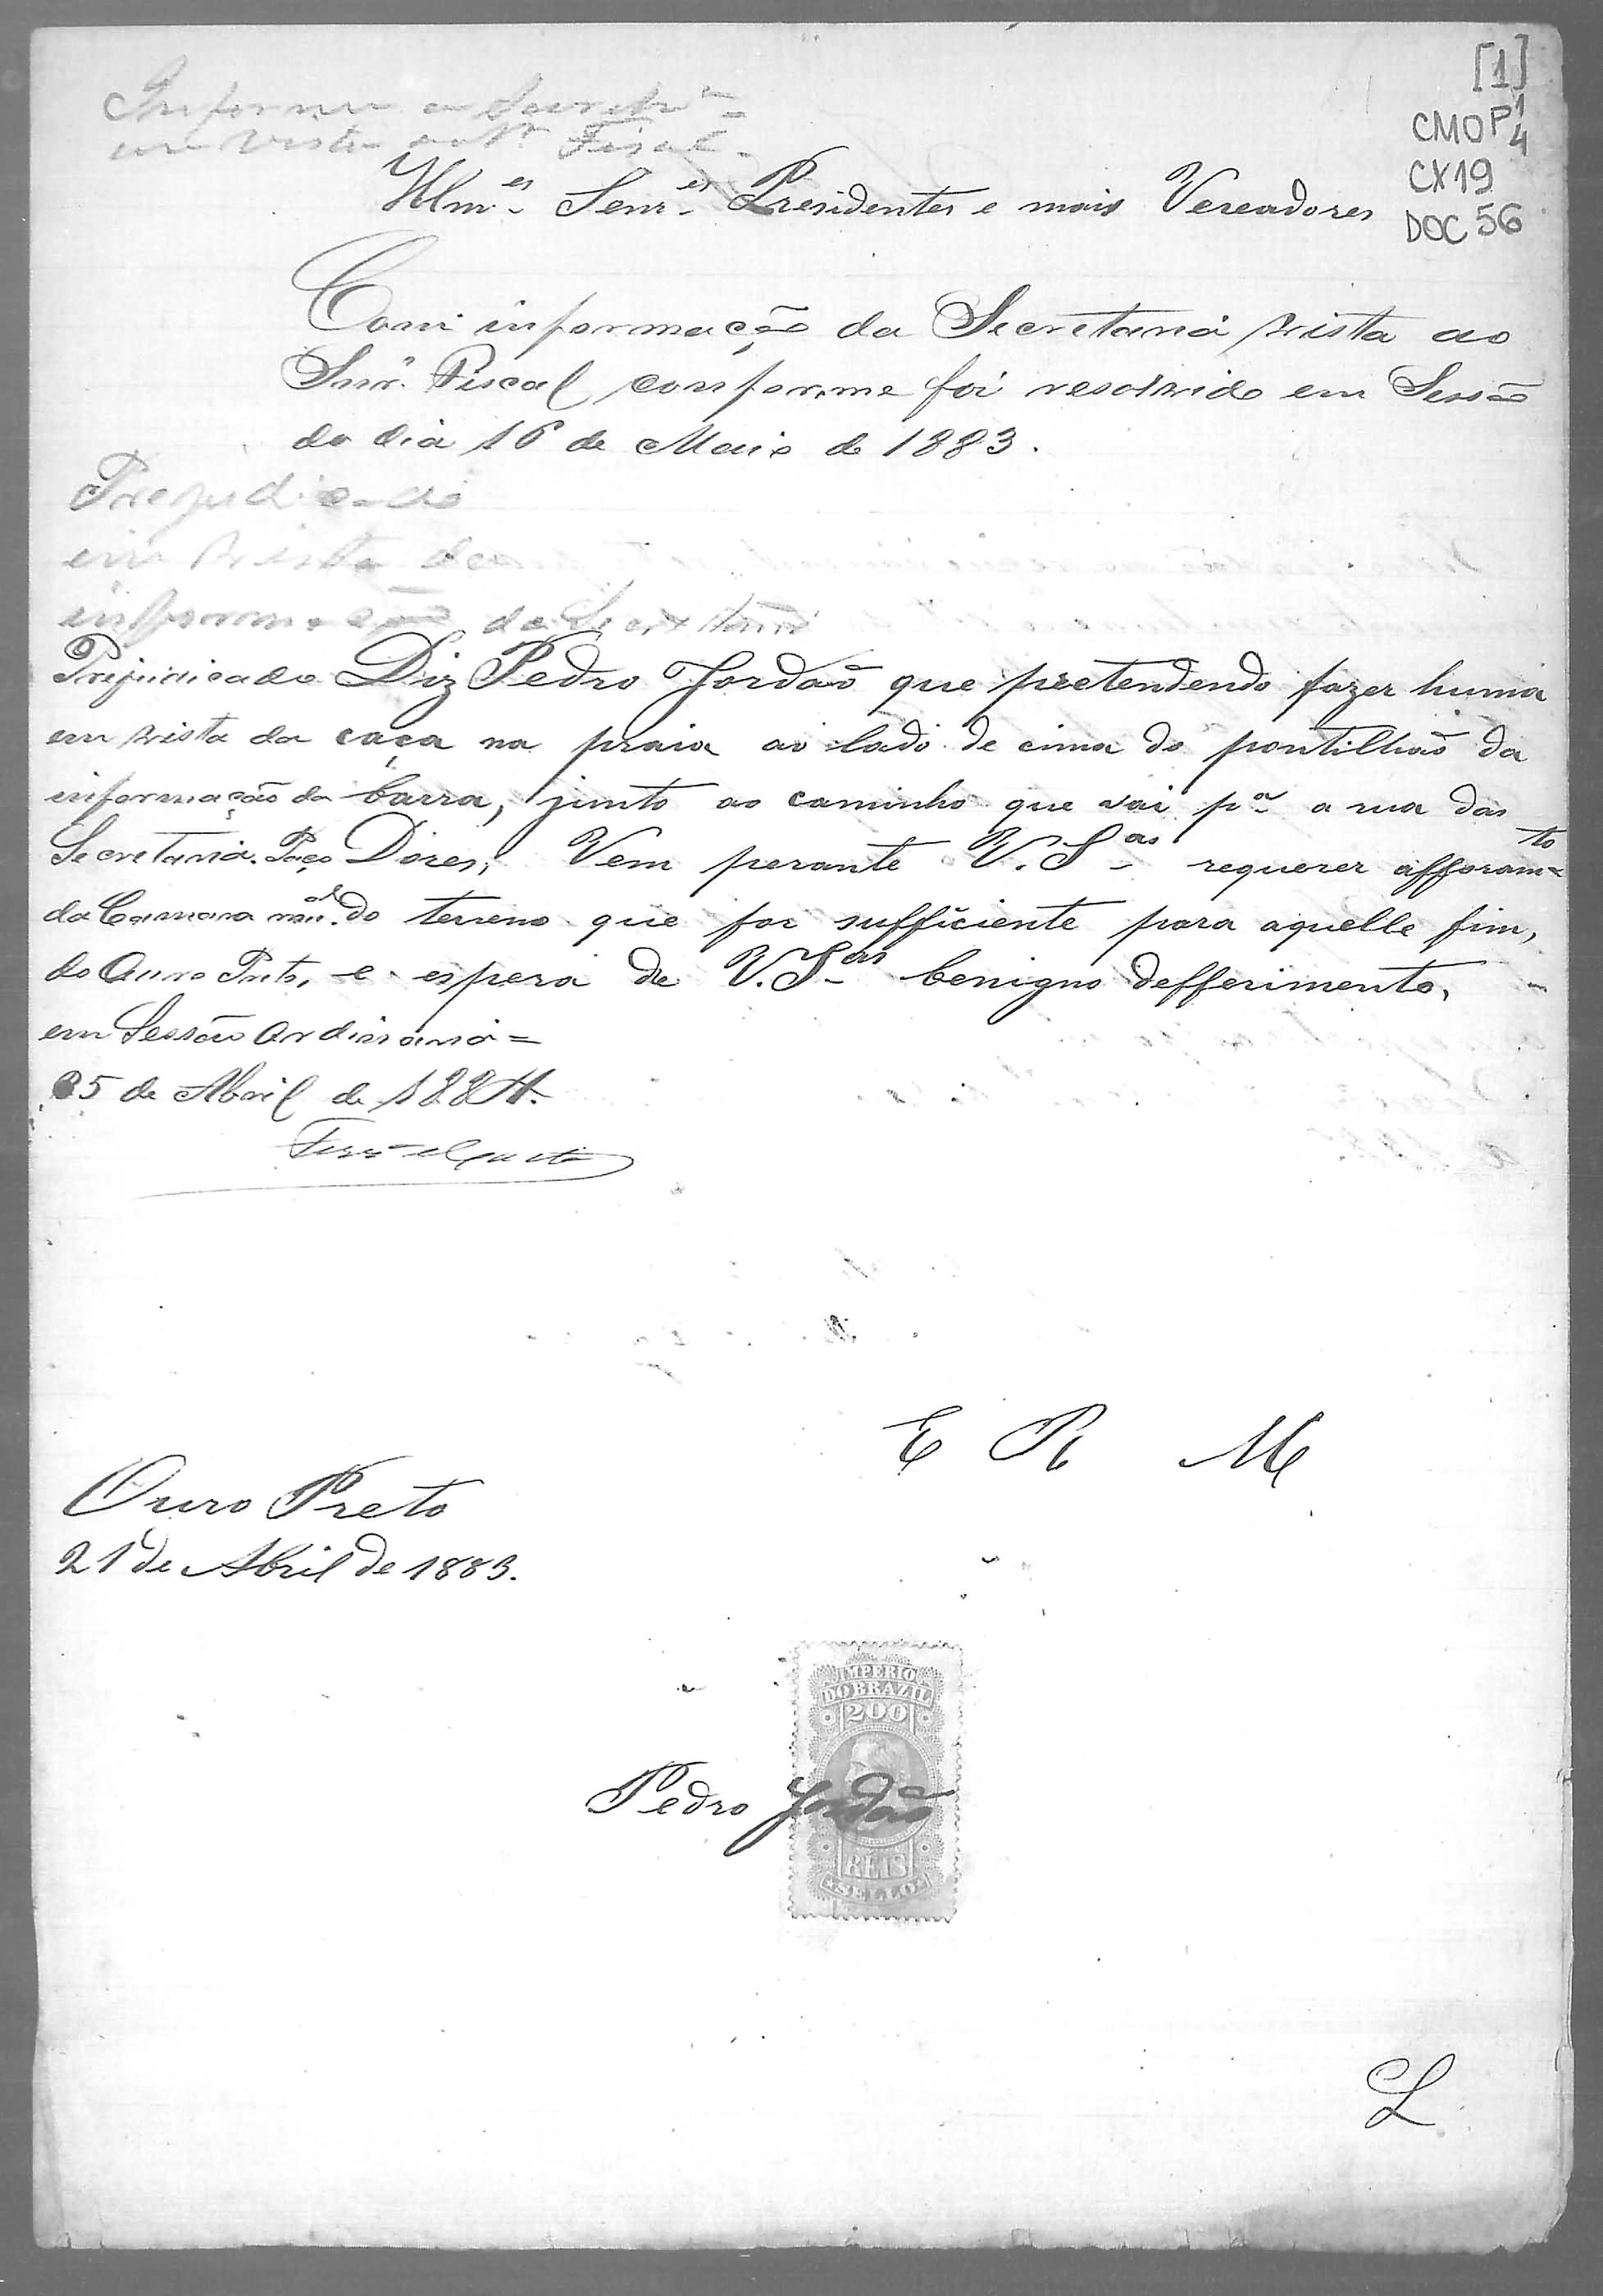 [1]
CMOP 1/4
CX19
DOC 56
Informe a Secretr.ª
em vista ao Sr. Fiscal.
Illm.es Senr.es Presidentes e mais Vereadores
Com informação da Secretaria vista ao
Snr. Fiscal conforme foi resolvido em Sessão
do dia 16 de Maio de 1883.
Prejudicado
em vista da
informação da Secretaria
Diz Pedro Jordaõ que pretendendo fazer huma
caça na praia ao lado de cima do pontilhaõ da
barra, junto ao caminho que vai p.ª a rua das
Dores; Vem perante V. S.as requerer afforam.to
do terreno que for sufficiente para aquelle fim,
e espera de V. S.as benigno defferimento.
Prejudicado
em vista da
informação da
Secretaria. Paço
da Camara mun.al
do Ouro Preto,
em Sessão Ordinaria =
25 de Abril de 1884.
E R M
Ouro Preto
21 de Abril de 1883.
IMPERIO
DO BRAZIL
200
Pedro Jordão
RÉIS
SELLO
L